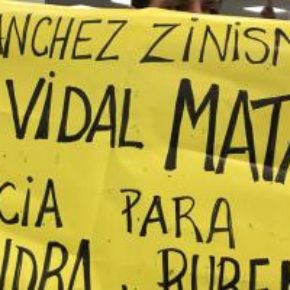 ANCHEZ ZINISM
VIDAL MATA
CIA PARA
NDRA. RUBE